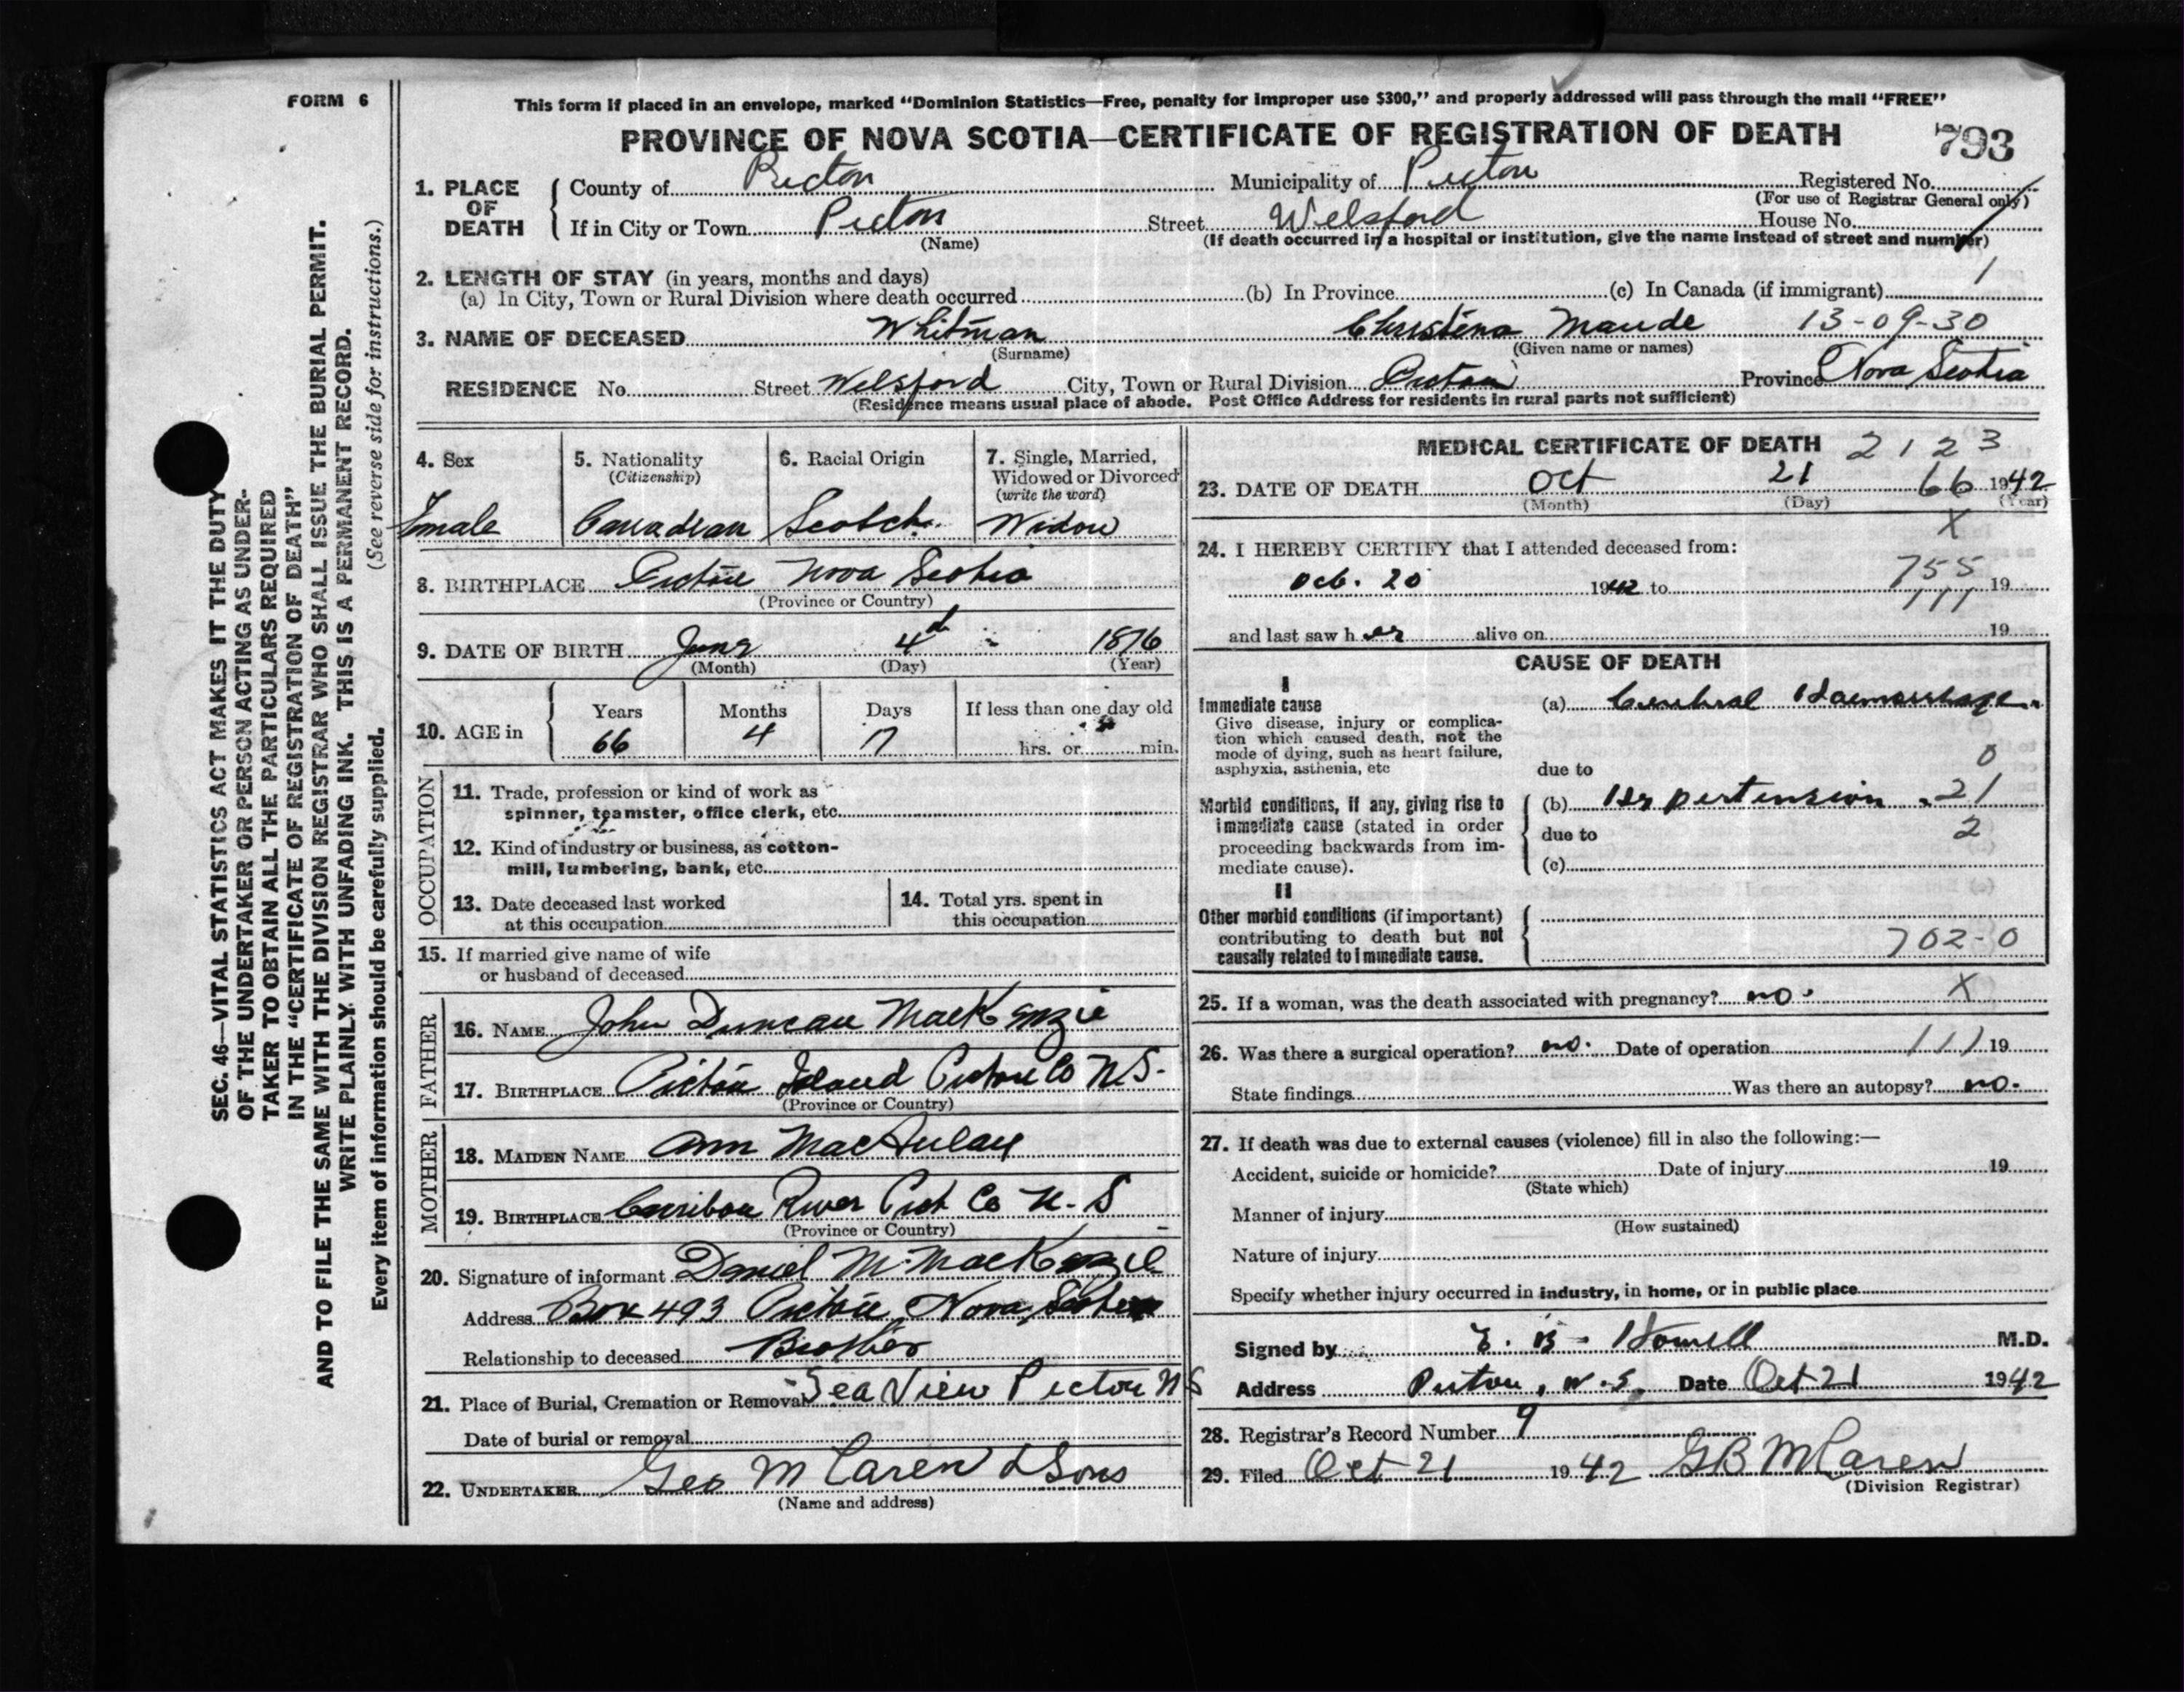 FORM 6
This form if placed in an envelope, marked "Dominion Statistics—Free, penalty for improper use $300," and properly addressed will pass through the mail "FREE"
PROVINCE OF NOVA SCOTIA—CERTIFICATE OF REGISTRATION OF DEATH 793
1. PLACE OF DEATH County of Pictou Municipality of Pictou Registered No.
(For use of Registrar General only)
If in City or Town Pictou Street Welsford House No.
(Name) (If death occurred in a hospital or institution, give the name instead of street and number)
2. LENGTH OF STAY (in years, months and days) 1
(a) In City, Town or Rural Division where death occurred (b) In Province (c) In Canada (if immigrant)
3. NAME OF DECEASED Whitman Christena Maude 13-09-30
(Surname) (Given name or names)
RESIDENCE No. Street Welsford City, Town or Rural Division Pictou Province Nova Scotia
(Residence means usual place of abode. Post Office Address for residents in rural parts not sufficient)
4. Sex
Female
5. Nationality
(Citizenship)
Canadian
6. Racial Origin
Scotch
7. Single, Married,
Widowed or Divorced
(write the word)
Widow
8. BIRTHPLACE Pictou Nova Scotia
(Province or Country)
9. DATE OF BIRTH June 4th 1876
(Month) (Day) (Year)
10. AGE in Years Months Days If less than one day old
66 4 17 hrs. or min.
OCCUPATION
11. Trade, profession or kind of work as
spinner, teamster, office clerk, etc.
12. Kind of industry or business, as cotton-
mill, lumbering, bank, etc.
13. Date deceased last worked
at this occupation
14. Total yrs. spent in
this occupation
15. If married give name of wife
or husband of deceased
FATHER
16. NAME John Duncan MacKenzie
17. BIRTHPLACE Pictou Island Pictou Co N.S.
(Province or Country)
MOTHER
18. MAIDEN NAME Ann MacAulay
19. BIRTHPLACE Caribou River Pict Co N.S
(Province or Country)
20. Signature of informant Daniel M. MacKenzie
Address Box 493 Pictou Nova Scotia
Relationship to deceased Brother
21. Place of Burial, Cremation or Removal Sea View Pictou NS
Date of burial or removal
22. UNDERTAKER Geo McLaren & Sons
(Name and address)
MEDICAL CERTIFICATE OF DEATH 2123
23. DATE OF DEATH Oct 21 66 1942
(Month) (Day) (Year)
X
24. I HEREBY CERTIFY that I attended deceased from:
Oct. 20 1942 to 755 19
111
and last saw her alive on 19
CAUSE OF DEATH
I
Immediate cause
Give disease, injury or complica-
tion which caused death, not the
mode of dying, such as heart failure,
asphyxia, asthenia, etc
(a) Cerebral Haemorrhage
0
due to
Morbid conditions, if any, giving rise to
immediate cause (stated in order
proceeding backwards from im-
mediate cause).
(b) Hypertension 21
due to 2
(c)
II
Other morbid conditions (if important)
contributing to death but not
causally related to immediate cause.
702-0
25. If a woman, was the death associated with pregnancy? no. X
26. Was there a surgical operation? no. Date of operation 111 19
State findings Was there an autopsy? no.
27. If death was due to external causes (violence) fill in also the following:—
Accident, suicide or homicide? Date of injury 19
(State which)
Manner of injury
(How sustained)
Nature of injury
Specify whether injury occurred in industry, in home, or in public place
Signed by E. B. Howell M.D.
Address Pictou, N.S. Date Oct 21 1942
28. Registrar's Record Number 9
29. Filed Oct 21 1942 GB McLaren
(Division Registrar)
SEC. 46—VITAL STATISTICS ACT MAKES IT THE DUTY
OF THE UNDERTAKER OR PERSON ACTING AS UNDER-
TAKER TO OBTAIN ALL THE PARTICULARS REQUIRED
IN THE "CERTIFICATE OF REGISTRATION OF DEATH"
AND TO FILE THE SAME WITH THE DIVISION REGISTRAR WHO SHALL ISSUE THE BURIAL PERMIT.
WRITE PLAINLY WITH UNFADING INK. THIS IS A PERMANENT RECORD.
Every item of information should be carefully supplied. (See reverse side for instructions.)